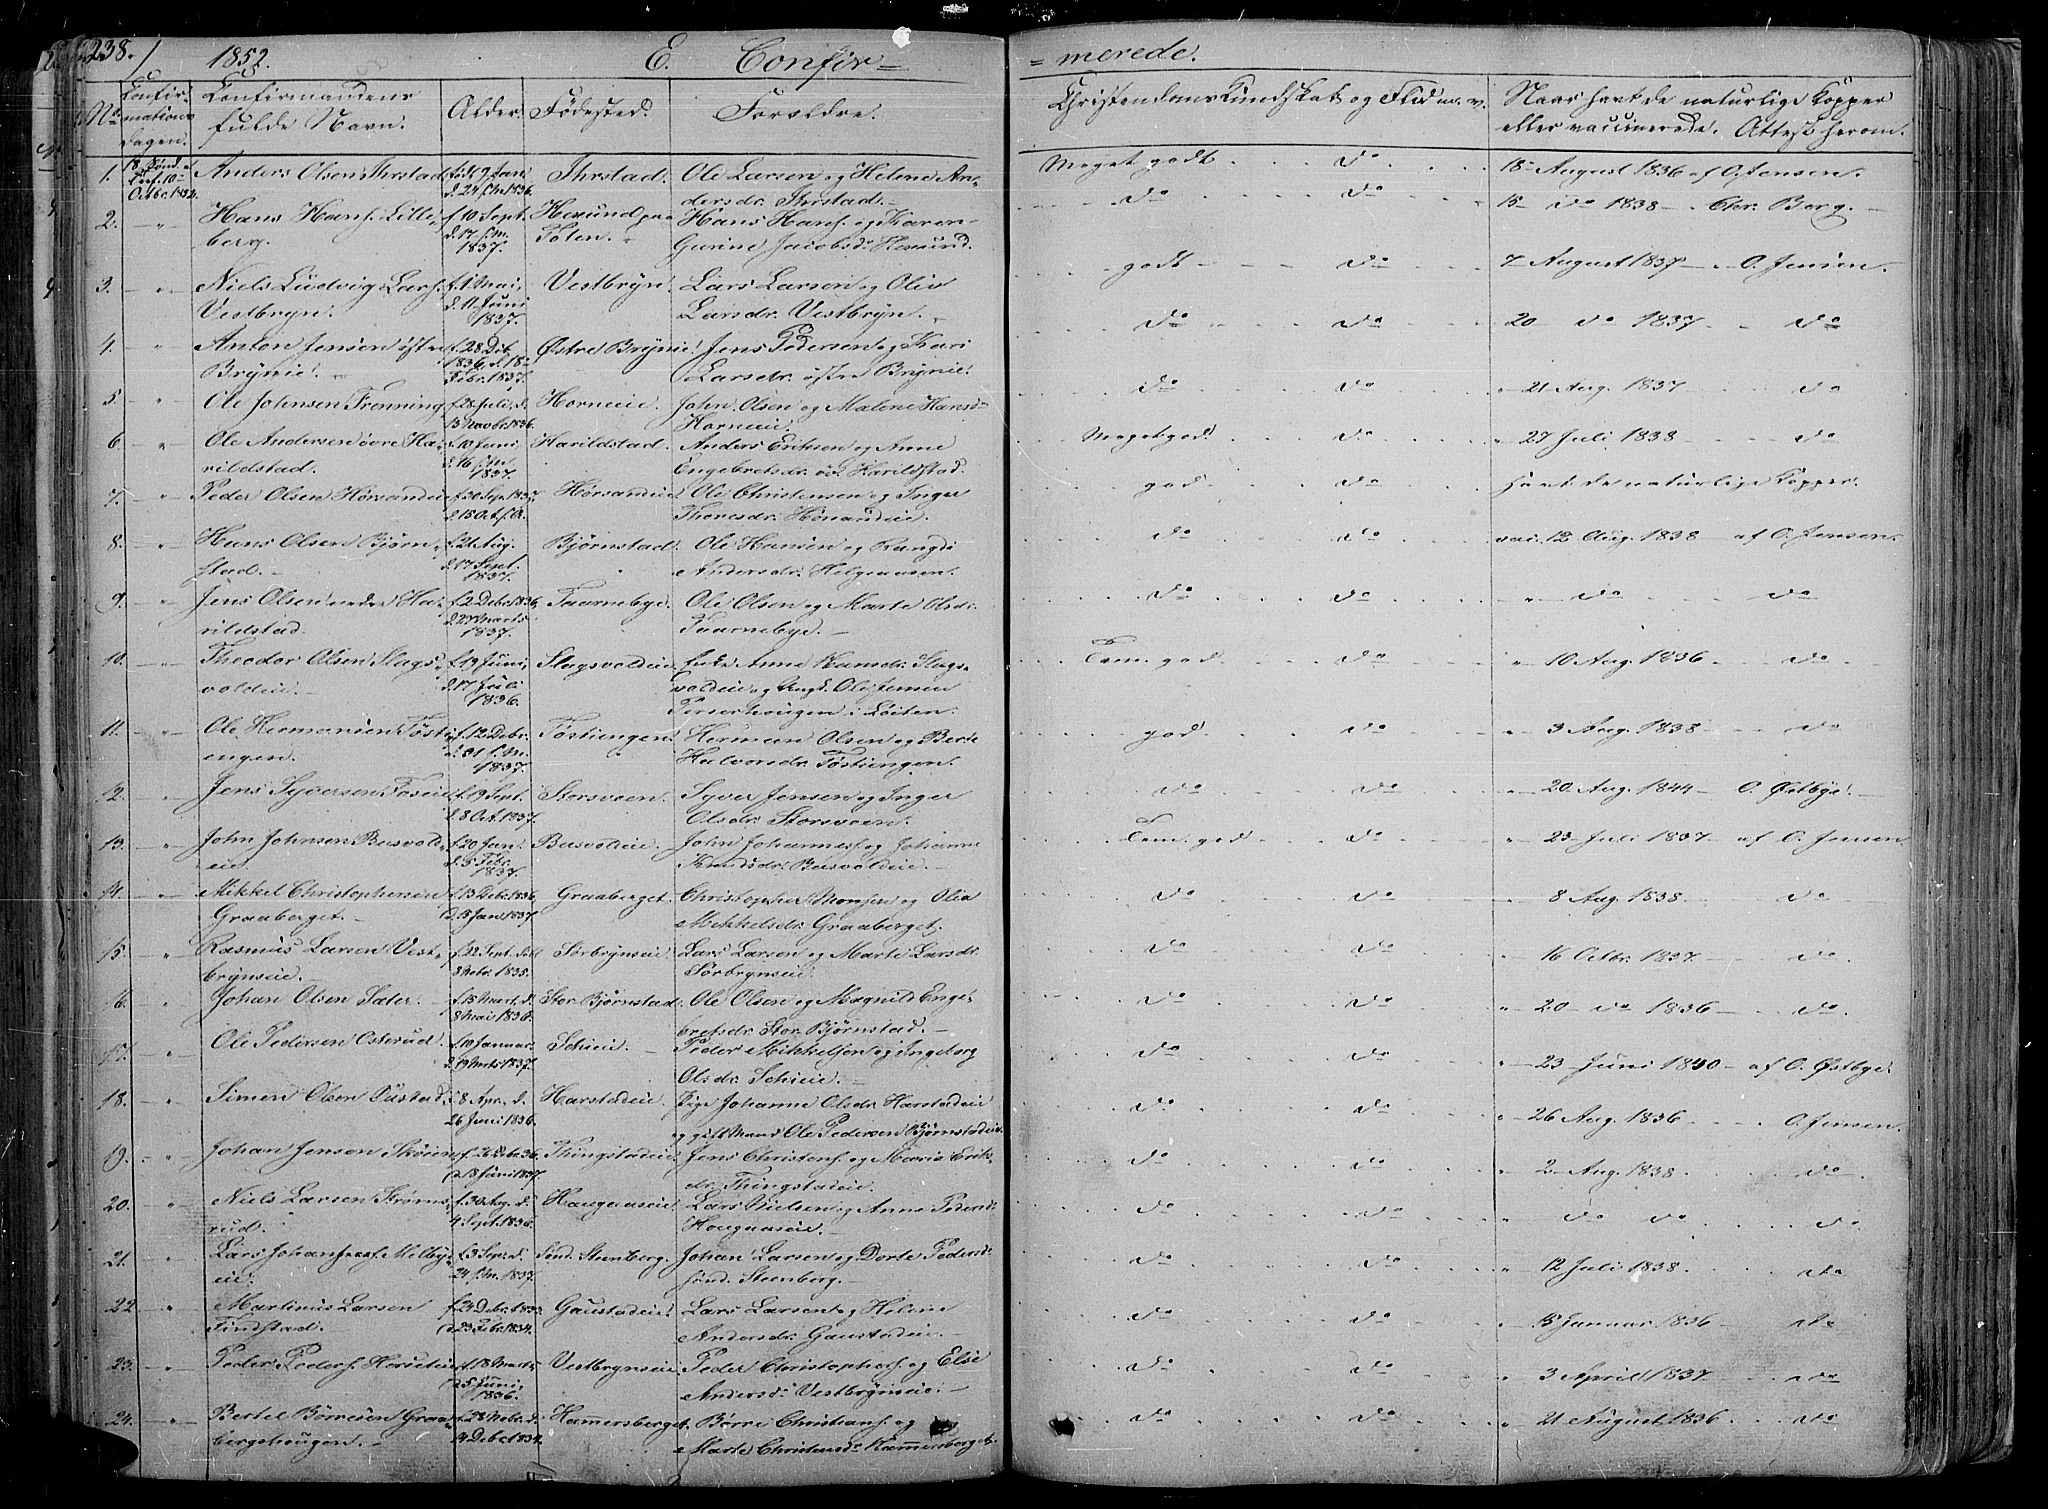 238. 1852. E. Confir= =merede.
No. Confirmationsdagen. Confirmandens fulde Navn. Alder. Fødested. Forældre. Christendoms Kundskab og Flid m. v. Naar havt de naturlige Kopper eller vaccinerede. Attest herom.
1. 18 Sønd. e. Tref. 10 Octbr. 1852. Anders Olsen Ihrstad f. 9 Jan. d. 24 s. M. 1836. Ihrstad. Ole Larsen og Helene Andersdr. Ihrstad. Meget godt do 18 August 1836 af O. Jensen.
2. " Hans Hans. Lilleberg. f. 10 Sept. d. 17 s. M. 1837. paa Toten. Hans Hans. og Karen Gurine Jacobsdr. do do 15 do 1838 " Chr. Berg.
3. " Niels Ludvig Lars. Vestbryn. f. 1 Mai, d. 11 Juni 1837. Vestbryn. Lars Larsen og Olea Larsdr. Vestbryn. godt do 7 August 1837 " O. Jensen.
4. " Anton Jensen østre Brynie. f. 28 Deb. 1836, d. 18 Febr. 1837. Østre Brynie. Jens Pedersen og Kari Larsdr. østre Brynie. do do 20 do 1837 do
5. " Ole Johnsen Frenning f. 28 Juli, d. 13 Novbr. 1836. Horneie. John Olsen og Malene Hansd. Horneie. do do " 21 Aug. 1837 do
6. " Ole Andersen øvre Harildstad. f. 10 Juni d. 16 s. M. 1837. Harildstad. Anders Eriksen og Anne Engebretsdr. øv. Harildstad. Meget god. do " 27 Juli 1838 do
7. " Peder Olsen Hørsandeie f. 20 Sep. 1837, d. 15 Oct. s. A. Hørsandeie. Ole Christensen og Inger Thoresdr. Hørsandeie. god do havt de naturlige Kopper.
8. " Hans Olsen Bjørnstad. f. 21 Aug. d. 17 Sept. 1837. Bjørnstad. Ole Hansen og Rangdi Andersdr. Helgeaasen. do do vac. 12 Aug. 1838 af O. Jensen.
9. " Jens Olsen nedre Harildstad. f. 2 Debr. 1836, d. 27 Marts 1837. Taarnebye. Ole Olsen og Marte Olsdr. Taarnebye. do do " do do
10. " Theodor Olsen Slagsvoldeie. f. 19 Juni, d. 17 Juli 1836. Slagsvoldeie. Enke Anne Hansdr. Slagsvoldeie og Ungk. Ole Jensen Perserhougen i Løiten. Tem. god do " 10 Aug. 1836 do
11. " Ole Hermansen Tøstiengen. f. 12 Debr. d. 31 s. M. 1837. Tøstiengen. Herman Olsen og Berte Halvorsdr. Tøstiengen. god do " 3 Aug. 1838 do
12. " Jens Syversen Foseie f. 19 Sept. d. 8 Oct. 1837. Storsveen. Syver Jensen og Inger Olsdr. Storsveen. do do " 20 Aug. 1844 O. Østbye.
13. " John Johnsen Busvoldeie. f. 20 Jan. d. 5 Febr. 1837. Busvoldeie. John Johannes. og Johanne Knudsdr. Busvoldeie. Tem. god do " 23 Juli 1837 af O. Jensen
14. " Mikkel Christophersen Graaberget. f. 13 Debr. 1836, d. 15 Jan. 1837. Graaberget. Christopher Monsen og Olea Mikkelsdr. Graaberget. do do " 8 Aug. 1838. do
15. " Rasmus Larsen Vestbrynseie. f. 22 Sept. d. 8 Nobr. 1835. Sørbrynseie. Lars Larsen og Marte Larsdr. Sørbrynseie. do do " 16 Octbr. 1837. do
16. " Johan Olsen Sæter. f. 15 Mart. d. 8 Mai 1836. Stor Bjørnstad. Ole Olsen og Magnild Engebretsdr. Stor Bjørnstad. do do " 20 do 1836 do.
17. " Ole Pedersen Osterud. f. 10 Januar. d. 19 Marts 1837. Schieie. Peder Mikkelsen og Ingeborg Olsdr. Schieie. do do " 23 Juni 1840 af O. Østbye.
18. " Simen Olsen Pustad. f. 8 Apr. d. 26 Juni 1836. Harstadeie. Pige Johanne Olsdr. Harstadeie og gift Mand Ole Pedersen Bjørnstadeie. do do " 26 Aug. 1836 O. Jensen.
19. " Johan Jensen Skøien f. 26 Deb. 36. d. 18 Juni 1837. Thingstadeie. Jens Christens. og Maria Eriksdr. Thingstadeie. do do " 2 Aug. 1838. do
20. " Niels Larsen Strømsrud. f. 30 Aug. d. 4 Sept. 1836. Haugaaseie. Lars Nielsen og Anne Pedersd. Haugaaseie. do do " do do do
21. " Lars Johans. Melbyeeie. f. 3 Sep. d. 24 s. M. 1837. Sønd. Steenberg. Johan Larsen og Dorte Pedersd. sønd. Steenberg. do do " 12 Juli 1838. do
22. " Martinus Larsen Findstad. f. 24 Debr. 1833. d. 23 Febr. 1834. Gaustadeie. Lars Larsen og Helene Andersdr. Gaustadeie. do do " 15 Januar 1836 do
23. " Peder Peders. f. 18 Marts d. 5 Juni, 1836. Vestbrynseie. Peder Christophers. og Else Andersd. Vestbrynseie. do do " 3 April 1837. do
24. " Bertel Børresen Graabergshougen. f. 28 Nobr. d. 14 Deb. 1834. Hammersberget. Børre Christians. og Marte Christensdr. Hammersberget. do do " 21 August 1836 do